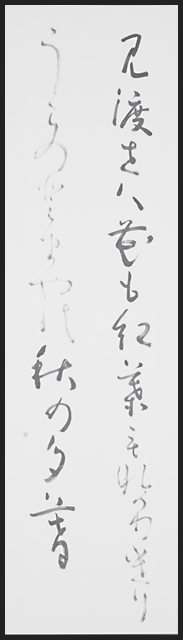 見渡せハ花も紅葉もなかりけり
うらのとまやの秋の夕暮